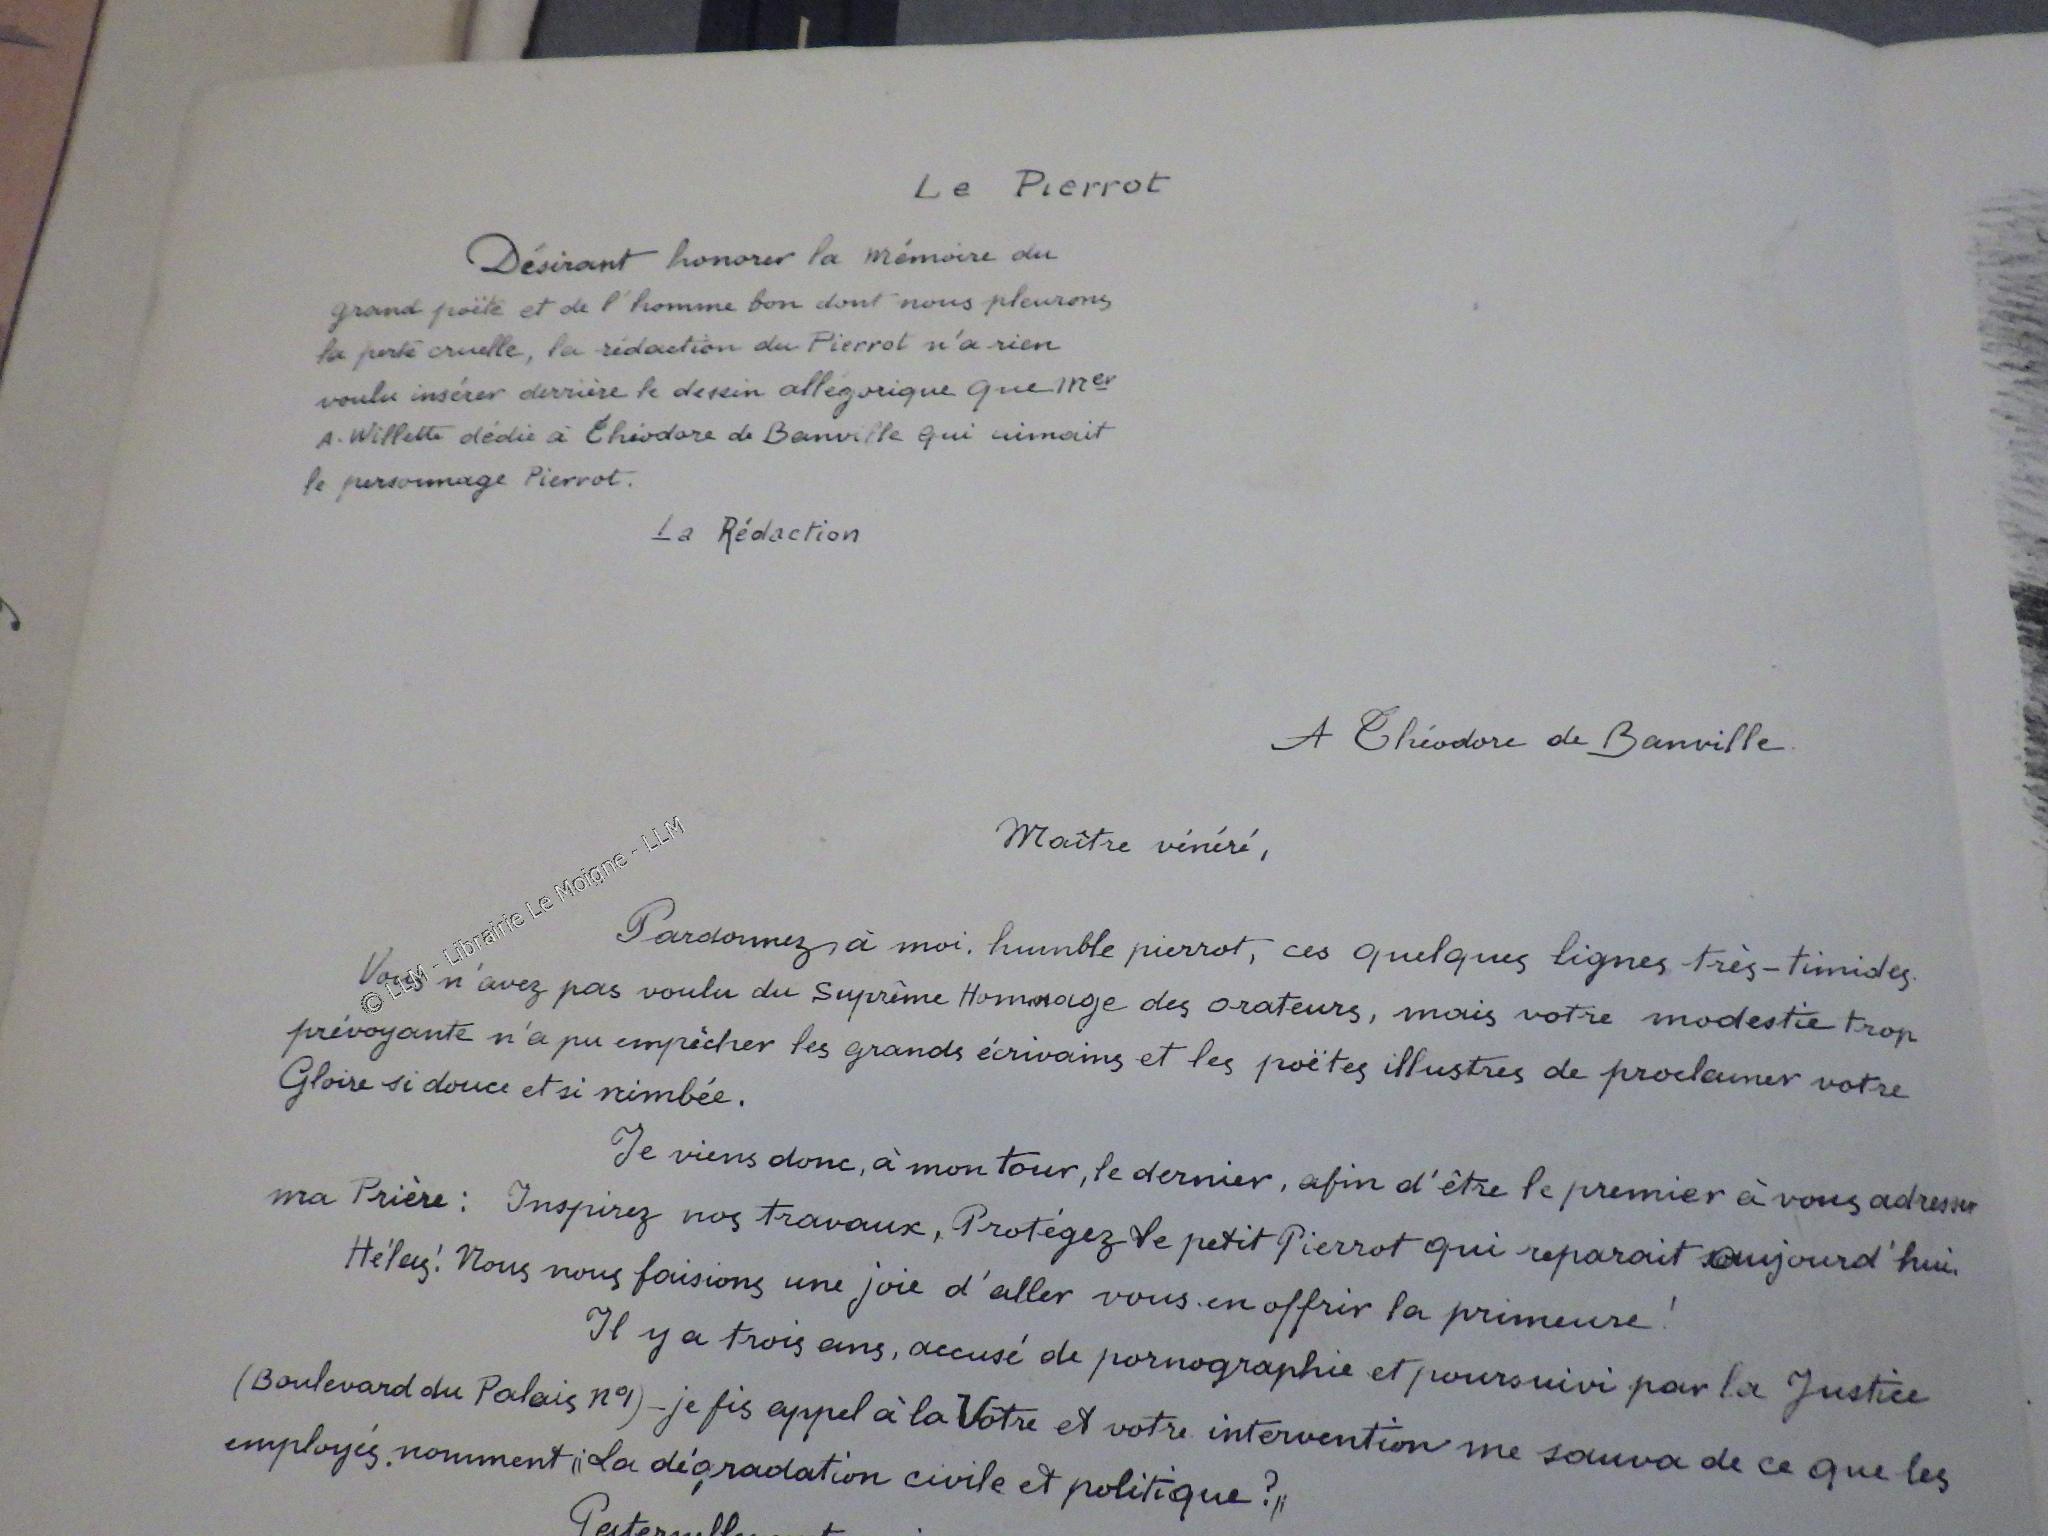 Le Pierrot
Désirant honorer la mémoire du
grand poëte et de l'homme bon dont nous pleurons
la perte cruelle, la rédaction du Pierrot n'a rien
voulu insérer derrière le dessin allégorique que Mer
A. Willette dédie à Théodore de Banville qui aimait
le personnage Pierrot.
La Rédaction
A Théodore de Banville.
Maître vénéré,
Pardonnez, à moi, humble pierrot, ces quelques lignes très-timides.
Vous n'avez pas voulu du Suprême Hommage des orateurs, mais votre modestie trop
prévoyante n'a pu empêcher les grands écrivains et les poëtes illustres de proclamer votre
Gloire si douce et si nimbée.
Je viens donc, à mon tour, le dernier, afin d'être le premier à vous adresser
ma Prière : Inspirez nos travaux, Protégez le petit Pierrot qui reparait aujourd'hui.
Hélas! Nous nous faisions une joie d'aller vous en offrir la primeure!
Il y a trois ans, accusé de pornographie et poursuivi par la Justice
(Boulevard du Palais n°1) - je fis appel à la Vôtre et votre intervention me sauva de ce que les
employés nomment "La dégradation civile et politique?"
© LLM - Librairie Le Moigne - LLM